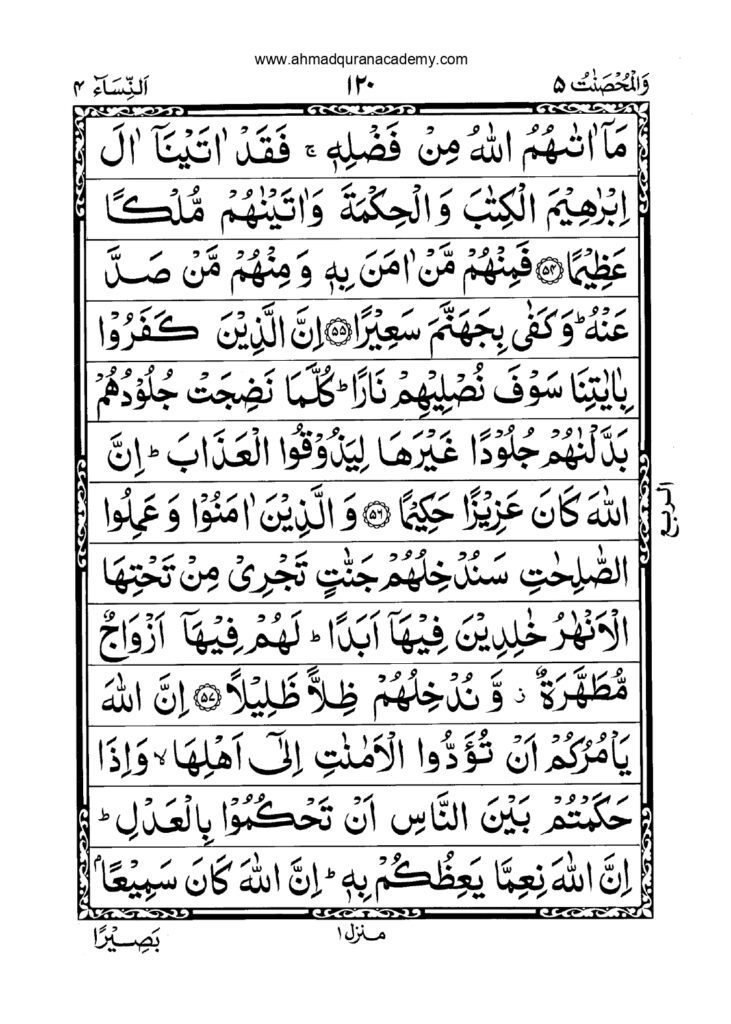 www.ahmadquranacademy.com
وَالْمُحْصَنٰتُ ۵
۱۲۰
اَلنِّسَآءُ ۴
مَآ اٰتٰىهُمُ اللّٰهُ مِنْ فَضْلِهٖ ۚ فَقَدْ اٰتَيْنَآ اٰلَ
اِبْرٰهِيْمَ الْكِتٰبَ وَالْحِكْمَةَ وَاٰتَيْنٰهُمْ مُّلْكًا
عَظِيْمًا ﴿۵۴﴾ فَمِنْهُمْ مَّنْ اٰمَنَ بِهٖ وَمِنْهُمْ مَّنْ صَدَّ
عَنْهُ ؕ وَكَفٰى بِجَهَنَّمَ سَعِيْرًا ﴿۵۵﴾ اِنَّ الَّذِيْنَ كَفَرُوْا
بِاٰيٰتِنَا سَوْفَ نُصْلِيْهِمْ نَارًا ؕ كُلَّمَا نَضِجَتْ جُلُوْدُهُمْ
بَدَّلْنٰهُمْ جُلُوْدًا غَيْرَهَا لِيَذُوْقُوا الْعَذَابَ ؕ اِنَّ
اللّٰهَ كَانَ عَزِيْزًا حَكِيْمًا ﴿۵۶﴾ وَالَّذِيْنَ اٰمَنُوْا وَعَمِلُوا
الصّٰلِحٰتِ سَنُدْخِلُهُمْ جَنّٰتٍ تَجْرِيْ مِنْ تَحْتِهَا
الْاَنْهٰرُ خٰلِدِيْنَ فِيْهَآ اَبَدًا ؕ لَهُمْ فِيْهَآ اَزْوَاجٌ
مُّطَهَّرَةٌ ز وَّنُدْخِلُهُمْ ظِلًّا ظَلِيْلًا ﴿۵۷﴾ اِنَّ اللّٰهَ
يَاْمُرُكُمْ اَنْ تُؤَدُّوا الْاَمٰنٰتِ اِلٰٓى اَهْلِهَا ۙ وَاِذَا
حَكَمْتُمْ بَيْنَ النَّاسِ اَنْ تَحْكُمُوْا بِالْعَدْلِ ؕ
اِنَّ اللّٰهَ نِعِمَّا يَعِظُكُمْ بِهٖ ؕ اِنَّ اللّٰهَ كَانَ سَمِيْعًاۢ
الربع
منزل ۱
بَصِيْرًا